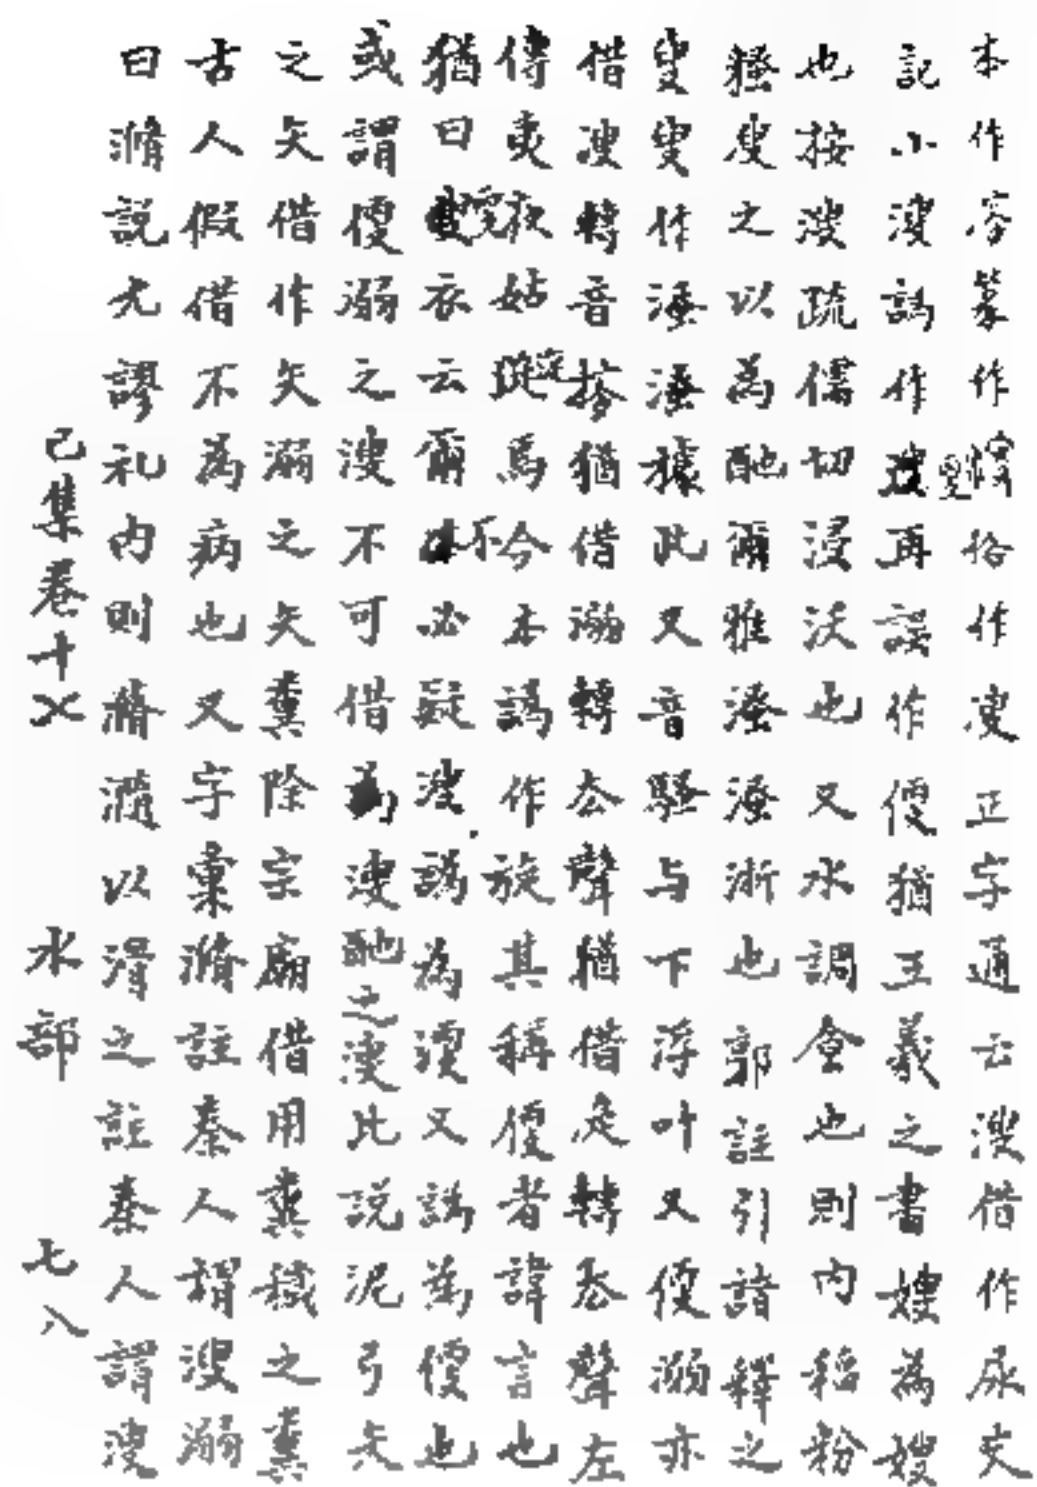 本作𡨥篆作㵮俗作溲正字通云溲借作尿史
記小溲譌作溲再誤作便猶王義之書嫂為㛮
也按溲疏儒切浸沃也又水調食也則內稻粉
糔叟之以為酏爾雅溞溞淅也郭註引詩釋之
叟叟作溞溞據此又音騷与下浮叶又便溺亦
借溲轉音搜猶借溺轉去聲猶借定轉去聲左
傳夷射姑旋焉今本譌作旋其稱便者諱言也
猶曰更衣云爾不必疑溲譌為㵮又譌為便也
或謂便溺之溲不可借為溲酏之溲此説泥弓矢
之矢借作矢溺之矢糞除宗廟借用糞穢之糞
古人假借不為病也又字彙滫註秦人謂溲溺
曰滫説尤謬礼內則滫瀡以滑之註秦人謂溲
己集卷十乂 水部 七八